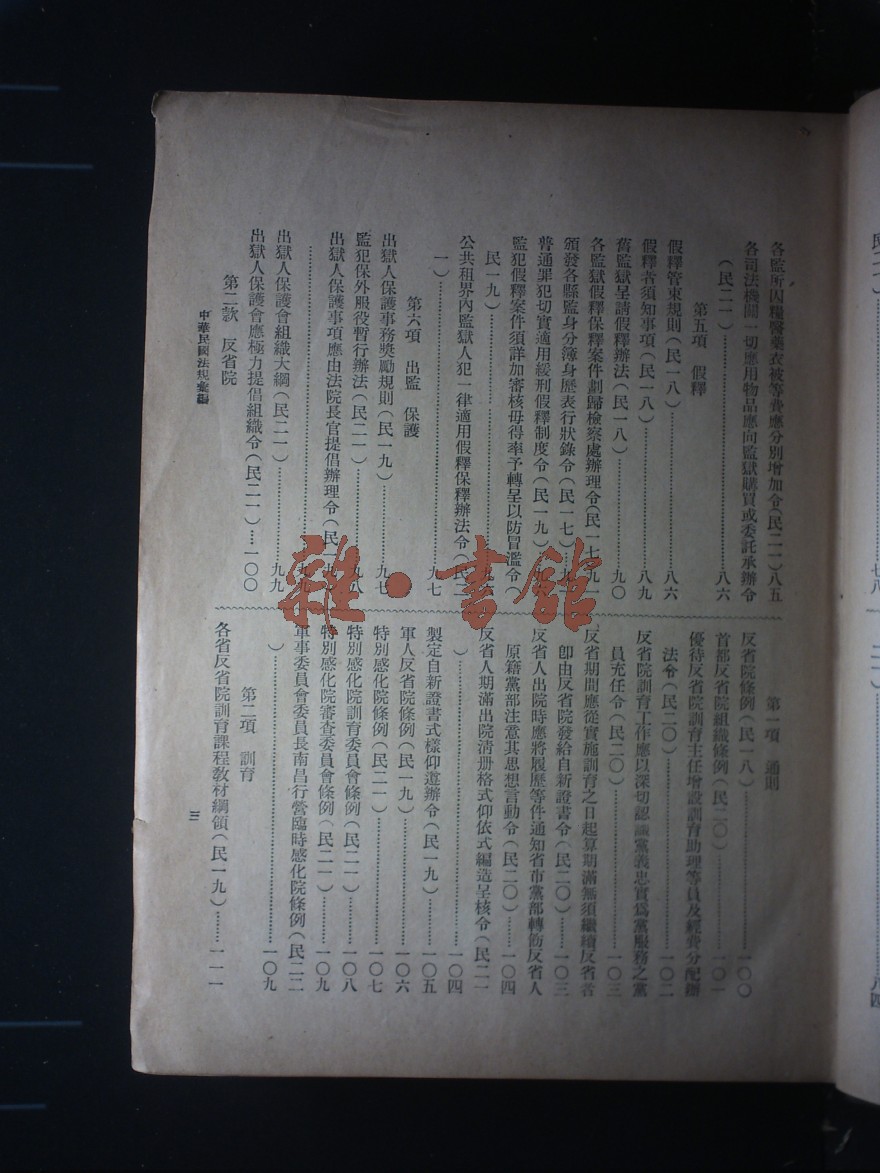 各監所囚糧醫藥衣被等費應分別增加令(民二一)八五
各司法機關一切應用物品應向監獄購買或委託承辦令
(民二一)…………八六
第五項 假釋
假釋管束規則(民一八)…………八六
假釋者須知事項(民一八)…………八九
舊監獄呈請假釋辦法(民一八)…………九〇
各監獄假釋保釋案件劃歸檢察處辦理令(民一七)九一
頒發各縣監身分簿身歷表行狀錄令(民一七)…九
普通罪犯切實適用緩刑假釋制度令(民一九)…九六
監犯假釋案件須詳加審核毋得率予轉呈以防冒濫令(
民一九)…………九
公共租界內監獄人犯一律適用假釋保釋辦法令(民二
一)…………九七
第六項 出監 保護
出獄人保護事務獎勵規則(民一九)…………九七
監犯保外服役暫行辦法(民二一)…………九八
出獄人保護事項應由法院長官提倡辦理令(民一九)
…………九九
出獄人保護會組織大綱(民二一)…………九九
出獄人保護會應極力提倡組織令(民二一)…一〇〇
第二款 反省院
第一項 通則
反省院條例(民一八)…………一〇〇
首都反省院組織條例(民二〇)…………一〇一
優待反省院訓育主任增設訓育助理等員及經費分配辦
法令(民二〇)…………一〇二
反省院訓育工作應以深切認識黨義忠實為黨服務之黨
員充任令(民二〇)…………一〇三
反省期間應從實施訓育之日起算期滿無須繼續反省者
卽由反省院發給自新證書令(民二〇)…………一〇三
反省人出院時應將履歷等件通知省市黨部轉飭反省人
原籍黨部注意其思想言動令(民二〇)…………一〇四
反省人期滿出院清册格式仰依式編造呈核令(民二一
)…………一〇四
製定自新證書式樣仰遵辦令(民一九)…………一〇五
軍人反省院條例(民一九)…………一〇六
特別感化院條例(民二一)…………一〇七
特別感化院訓育委員會條例(民二一)…………一〇八
特別感化院審查委員會條例(民二一)…………一〇九
軍事委員會委員長南昌行營臨時感化院條例(民二二
)…………一〇九
第二項 訓育
各省反省院訓育課程教材綱領(民一九)……一一一
中華民國法規彙編
三
雜·書館
七八
八四